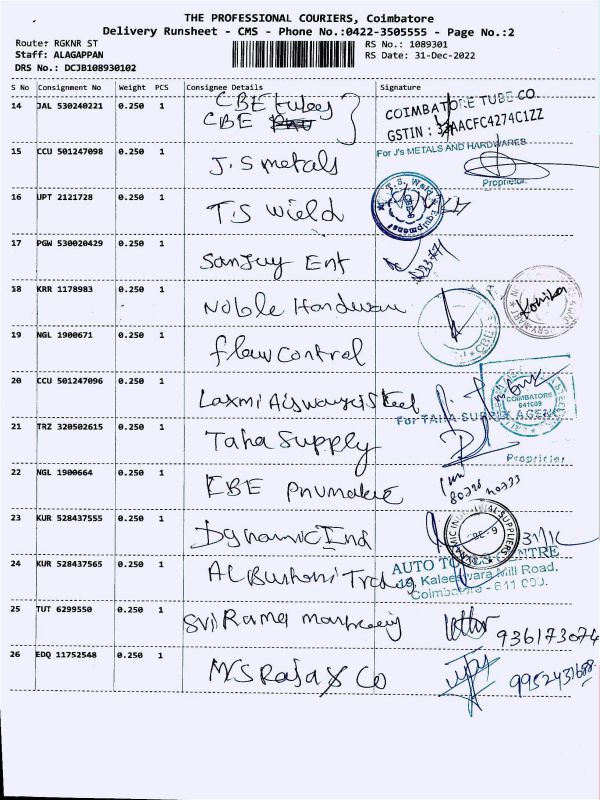 THE PROFESSIONAL COURIERS, Coimbatore
Delivery Runsheet - CMS - Phone No.:0422-3505555 - Page No.:2
Route: RGKNR ST
RS No.: 1089301
Staff: ALAGAPPAN
RS Date: 31-Dec-2022
DRS No.: DCJB108930102
S No Consignment No Weight PCS Consignee Details Signature
14 JAL 530240221 0.250 1 CBE tubes
CBE
COIMBATORE TUBE CO.
GSTIN : 33AACFC4274C1ZZ
15 CCU 501247098 0.250 1 J.S metals
For J's METALS AND HARDWARES
Proprietor
16 UPT 2121728 0.250 1 T.S Wield
T.S. Weld Equipments
17 PGW 530020429 0.250 1 Sanjuy Ent
18 KRR 1178983 0.250 1 Noble Hardware
19 NGL 1900671 0.250 1 flow control
20 CCU 501247096 0.250 1 Laxmi Aiswarya Steel
COIMBATORE
641009
21 TRZ 320502615 0.250 1 Taha Supply
For TAHA SUPPLY AGENCY
Proprietor
22 NGL 1900664 0.250 1 CBE
23 KUR 528437555 0.250 1 Dynamic Ind
DYNAMIC INDUSTRIAL SUPPLIERS
CBE-9
24 KUR 528437565 0.250 1 Al Bushoni Trading
AUTO TOOLS CENTRE
19, Kaleeswara Mill Road,
Coimbatore - 611 000.
25 TUT 6299550 0.250 1 Sri Rama
936173074
26 EDQ 11752548 0.250 1 M/S Raja & Co